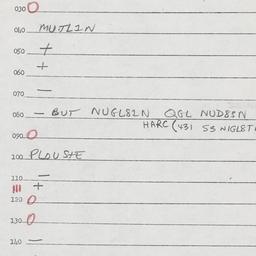 030 O
040 MUTLIN
050 +
060 +
070 —
080 — BUT NUGLSIN QGL NUDSIN
HARC (431 53 NIGLST
090 O
100 PLOUSTE
110 —
+
120 O
130 O
140 —